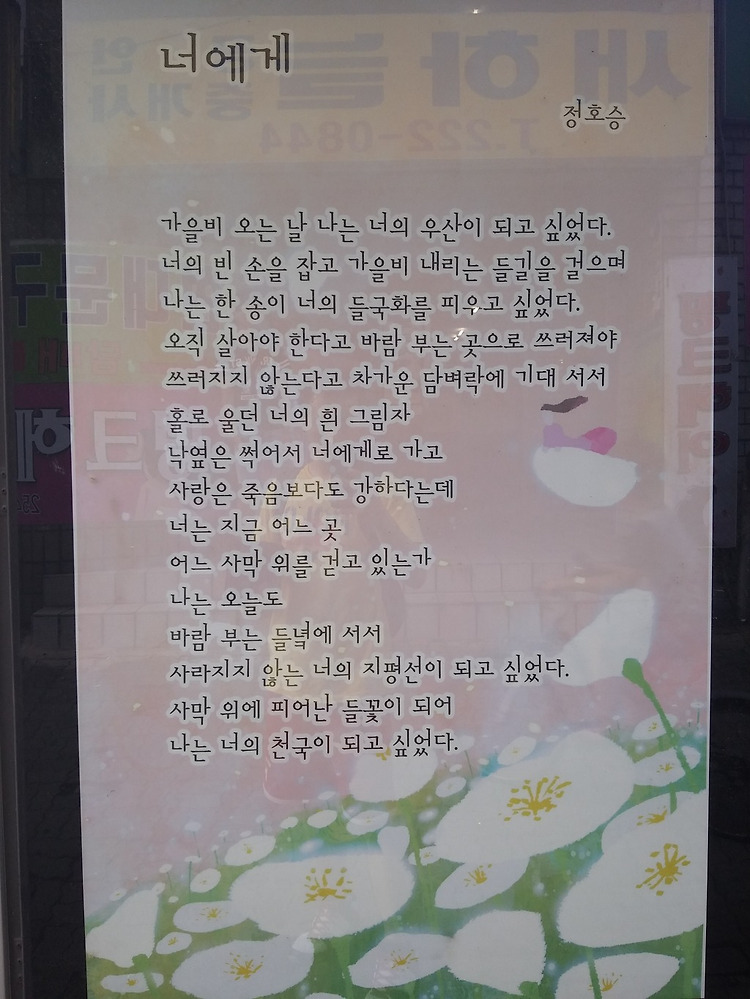 너에게
정호승
가을비 오는 날 나는 너의 우산이 되고 싶었다.
너의 빈 손을 잡고 가을비 내리는 들길을 걸으며
나는 한 송이 너의 들국화를 피우고 싶었다.
오직 살아야 한다고 바람 부는 곳으로 쓰러져야
쓰러지지 않는다고 차가운 담벼락에 기대 서서
홀로 울던 너의 흰 그림자
낙옆은 썩어서 너에게로 가고
사랑은 죽음보다도 강하다는데
너는 지금 어느 곳
어느 사막 위를 걷고 있는가
나는 오늘도
바람 부는 들녘에 서서
사라지지 않는 너의 지평선이 되고 싶었다.
사막 위에 피어난 들꽃이 되어
나는 너의 천국이 되고 싶었다.
새하늘
중개사
T.222-0844